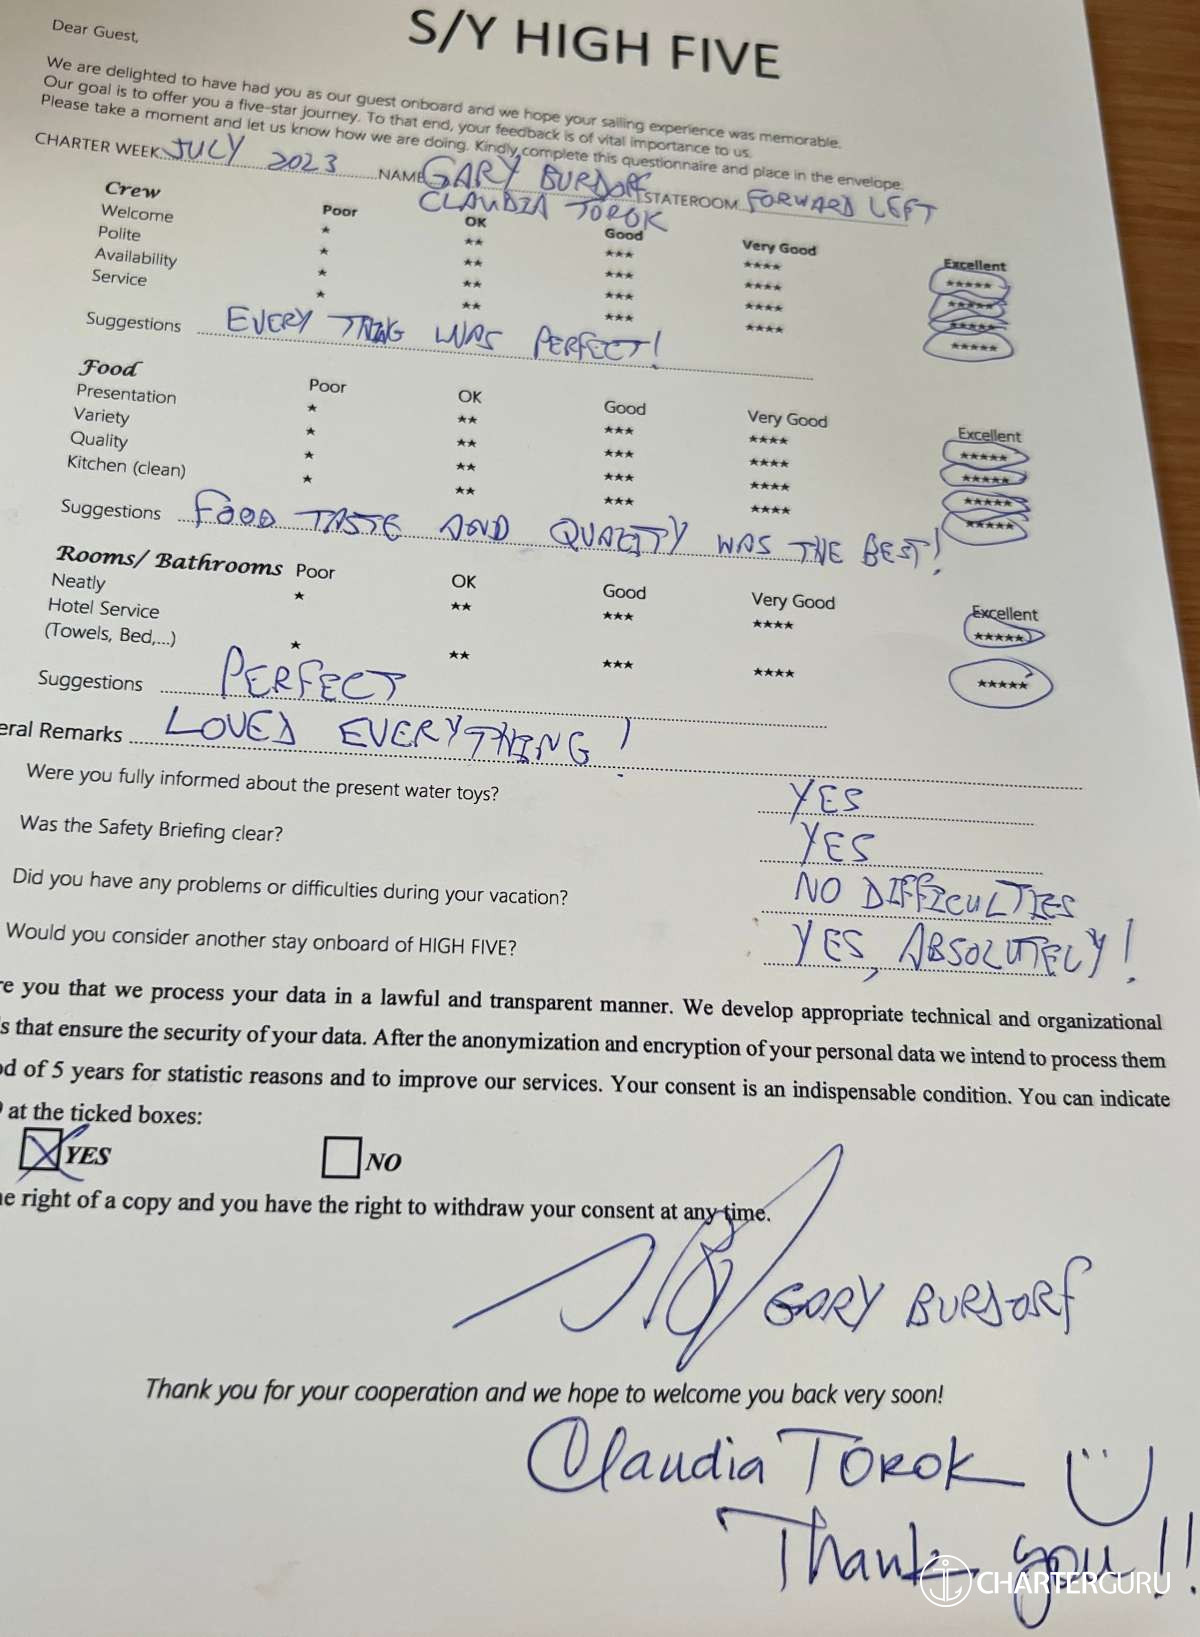 S/Y HIGH FIVE
Dear Guest,
We are delighted to have had you as our guest onboard and we hope your sailing experience was memorable.
Our goal is to offer you a five-star journey. To that end, your feedback is of vital importance to us.
Please take a moment and let us know how we are doing. Kindly complete this questionnaire and place in the envelope.
CHARTER WEEK JULY 2023 NAME GARY BURDORF STATEROOM FORWARD LEFT
CLAUDIA TOROK
Crew Poor OK Good Very Good Excellent
Welcome * ** *** **** *****
Polite * ** *** **** *****
Availability * ** *** **** *****
Service * ** *** **** *****
Suggestions EVERY THING WAS PERFECT!
Food Poor OK Good Very Good Excellent
Presentation * ** *** **** *****
Variety * ** *** **** *****
Quality * ** *** **** *****
Kitchen (clean) * ** *** **** *****
Suggestions FOOD TASTE AND QUALITY WAS THE BEST!
Rooms/ Bathrooms Poor OK Good Very Good Excellent
Neatly * ** *** **** *****
Hotel Service
(Towels, Bed,...) * ** *** **** *****
Suggestions PERFECT
eral Remarks LOVED EVERYTHING!
Were you fully informed about the present water toys? YES
Was the Safety Briefing clear? YES
Did you have any problems or difficulties during your vacation? NO DIFFICULTIES
Would you consider another stay onboard of HIGH FIVE? YES, ABSOLUTELY!
re you that we process your data in a lawful and transparent manner. We develop appropriate technical and organizational
s that ensure the security of your data. After the anonymization and encryption of your personal data we intend to process them
od of 5 years for statistic reasons and to improve our services. Your consent is an indispensable condition. You can indicate
at the ticked boxes:
YES NO
he right of a copy and you have the right to withdraw your consent at any time.
GARY BURDORF
Thank you for your cooperation and we hope to welcome you back very soon!
Claudia TOROK
Thank you!!
CHARTERGURU